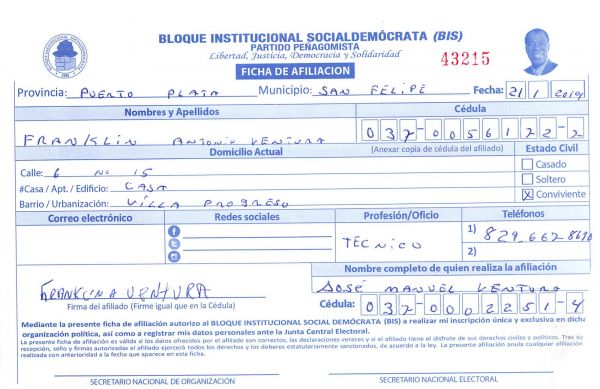 BLOQUE INSTITUCIONAL SOCIALDEMÓCRATA (BIS)
PARTIDO PEÑAGOMISTA
Libertad, Justicia, Democracia y Solidaridad
43215
FICHA DE AFILIACION
Provincia: PUERTO PLATA Municipio: SAN FELIPE Fecha: 21/1/2019
Nombres y Apellidos Cédula
FRANKLIN ANTONIO VENTURA 037-0056122-2
Domicilio Actual (Anexar copia de cédula del afiliado) Estado Civil
Calle: 6 No 15 Casado
#Casa / Apt. / Edificio: CASA Soltero
Barrio / Urbanización: VILLA PROGRESO X Conviviente
Correo electrónico Redes sociales Profesión/Oficio Teléfonos
TECNICO 1) 829-662-8690
2)
Nombre completo de quien realiza la afiliación
FRANKLIN A VENTURA JOSÉ MANUEL VENTURA
Firma del afiliado (Firme igual que en la Cédula) Cédula: 037-0002251-4
Mediante la presente ficha de afiliación autorizo al BLOQUE INSTITUCIONAL SOCIAL DEMÓCRATA (BIS) a realizar mi inscripción única y exclusiva en dicha
organización política, así como a registrar mis datos personales ante la Junta Central Electoral.
La presente ficha de afiliación es válida si los datos ofrecidos por el afiliado son correctos, las declaraciones veraces y si el afiliado tiene el disfrute de sus derechos civiles y políticos. Tras su
recepción, sello y firmas autorizadas el afiliado ejercerá todos los derechos y los deberes estatutariamente sancionados, de acuerdo a la ley. La presente afiliación anula cualquier afiliación
realizada con anterioridad a la fecha que aparece en esta ficha.
SECRETARIO NACIONAL DE ORGANIZACIÓN SECRETARIO NACIONAL ELECTORAL